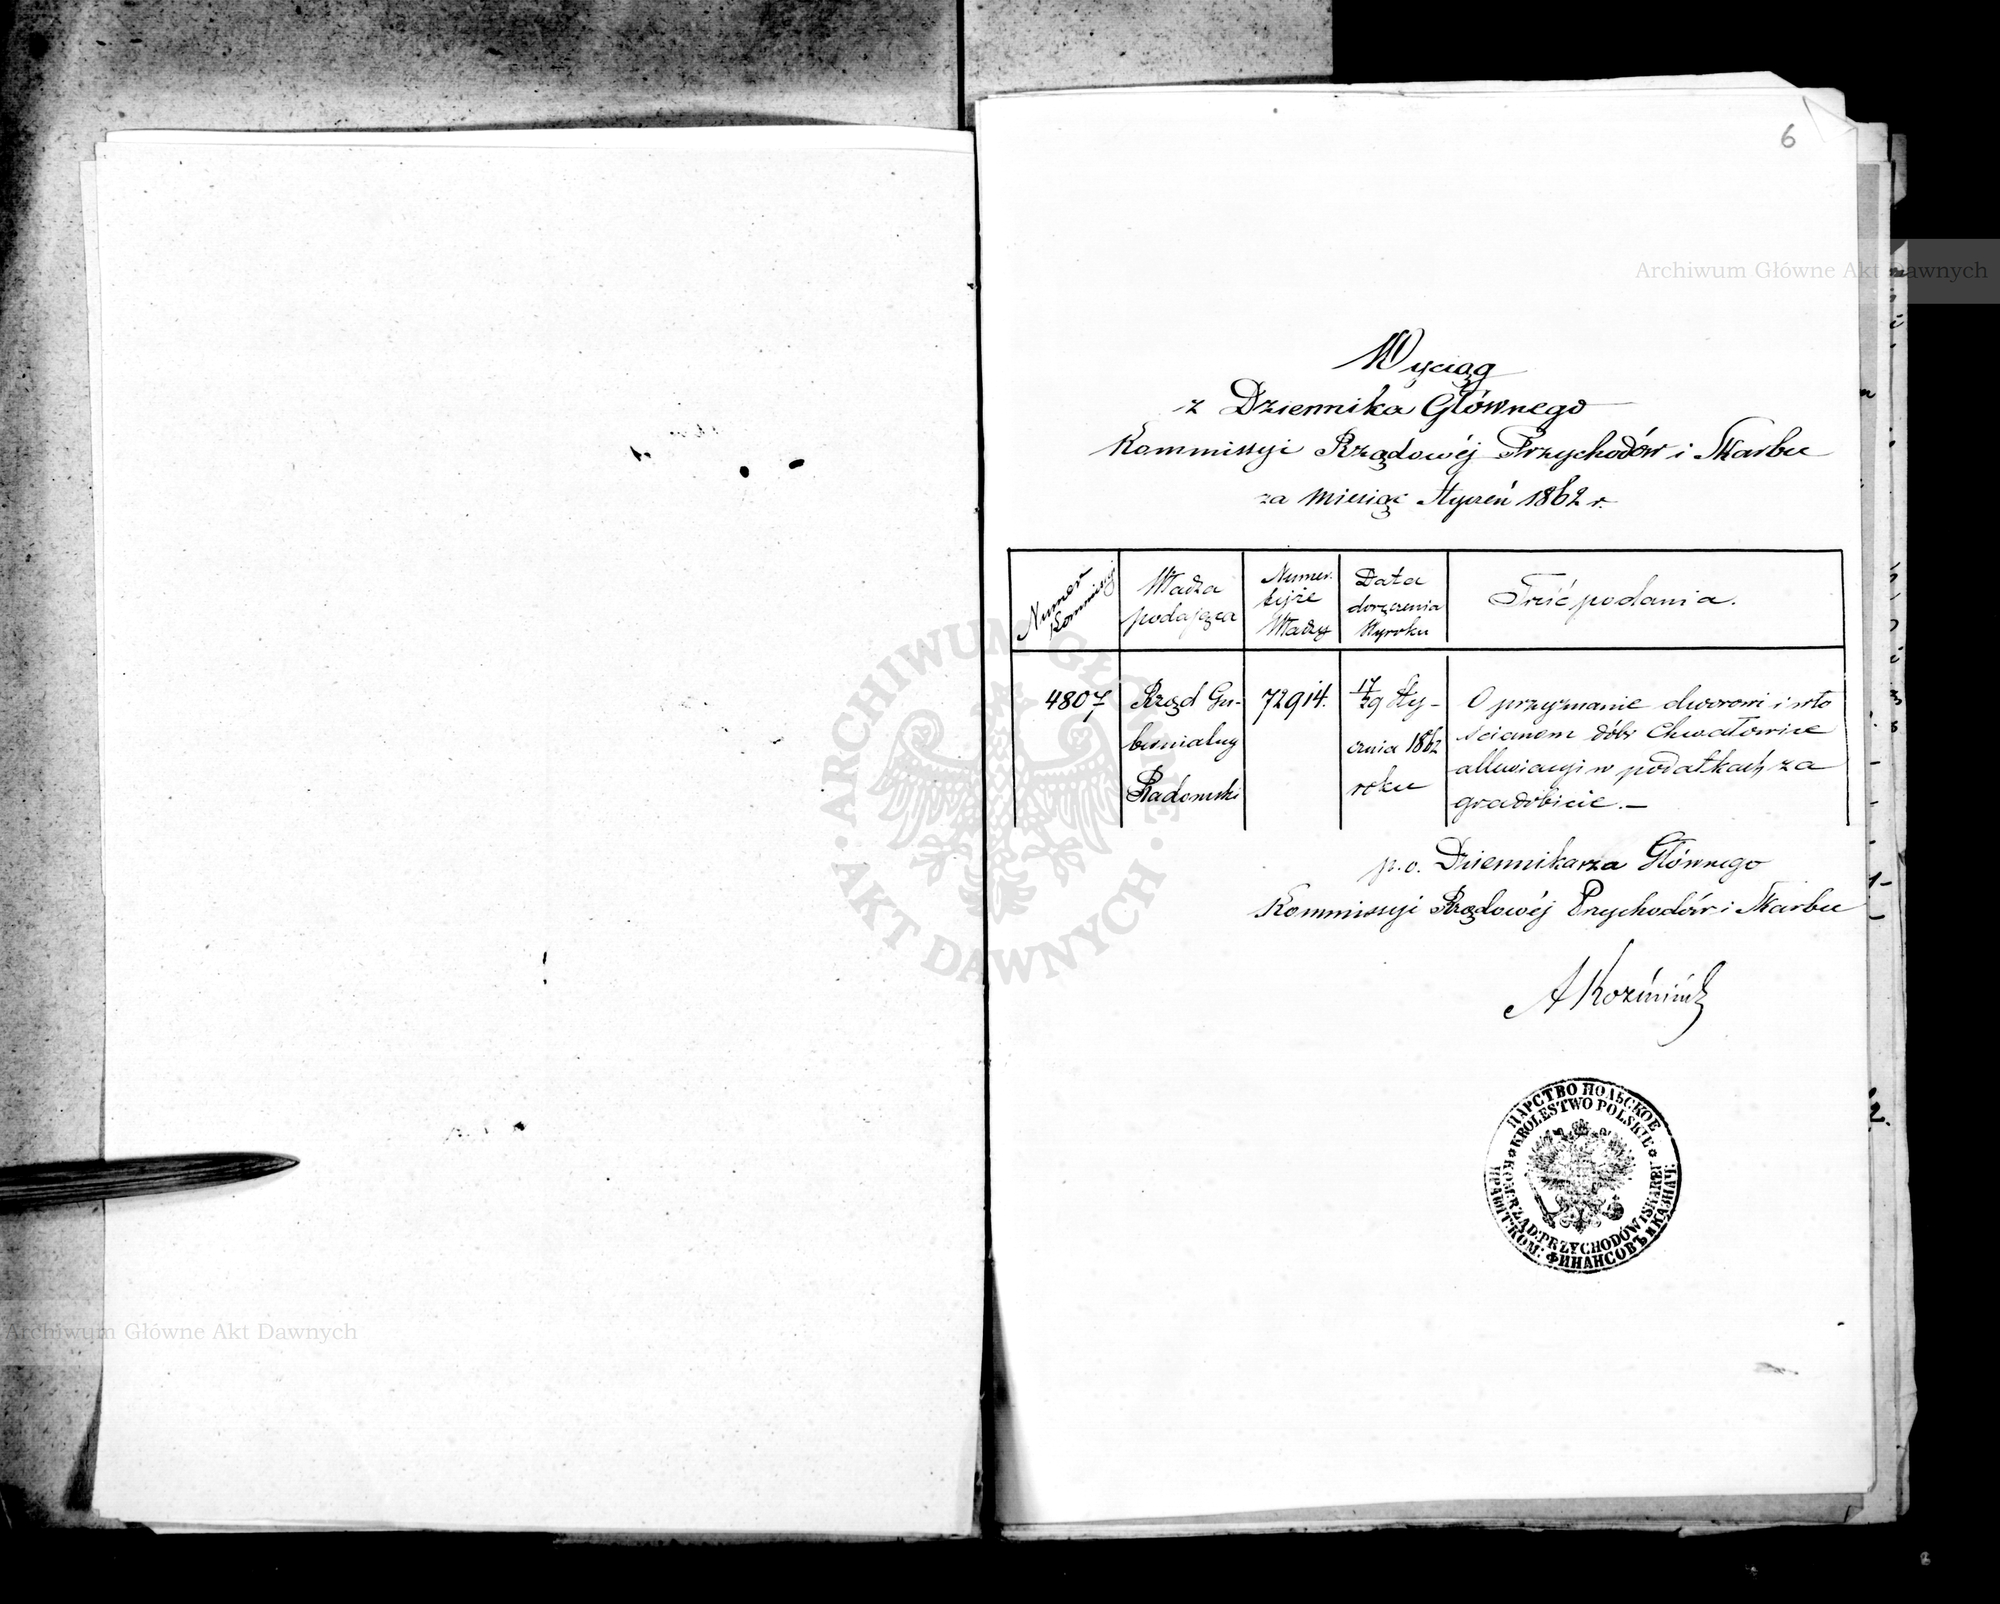 6
Archiwum Główne Akt Dawnych
Wyciąg
z Dziennika Głównego
Kommissyi Rządowéj Przychodów i Skarbu
za miesiąc Styczeń 1862 r.
Numer Kommissyi
Władza podająca
Numer tejże Władzy
Data doręczenia Wyroku
Treść podania.
4807
Rząd Gu-
bernialny
Radomski
72914.
17/29 Sty-
cznia 1862
roku
O przyznanie dworowi i wło
ścianom dóbr Chwałowice
alluwiacyi w podatkach za
gradobicie.—
p.o. Dziennikarza Głównego
Kommissyi Rządowéj Przychodów i Skarbu
ЦАРСТВО ПОЛЬСКОЕ
KRÓLESTWO POLSKIE
KOM: RZĄD: PRZYCHODÓW I SKARBU
ПРАВИТ: КОМ: ФИНАНСОВЪ И КАЗНАЧ:
ARCHIWUM GŁÓWNE
AKT DAWNYCH
Archiwum Główne Akt Dawnych